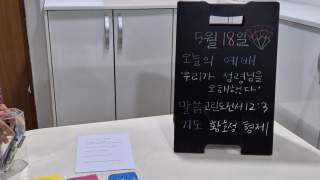 5월 18일
오늘의 예배
"우리가 성령님을
오해한다"
말씀 고린도전서 12:3
기도 황호성 형제